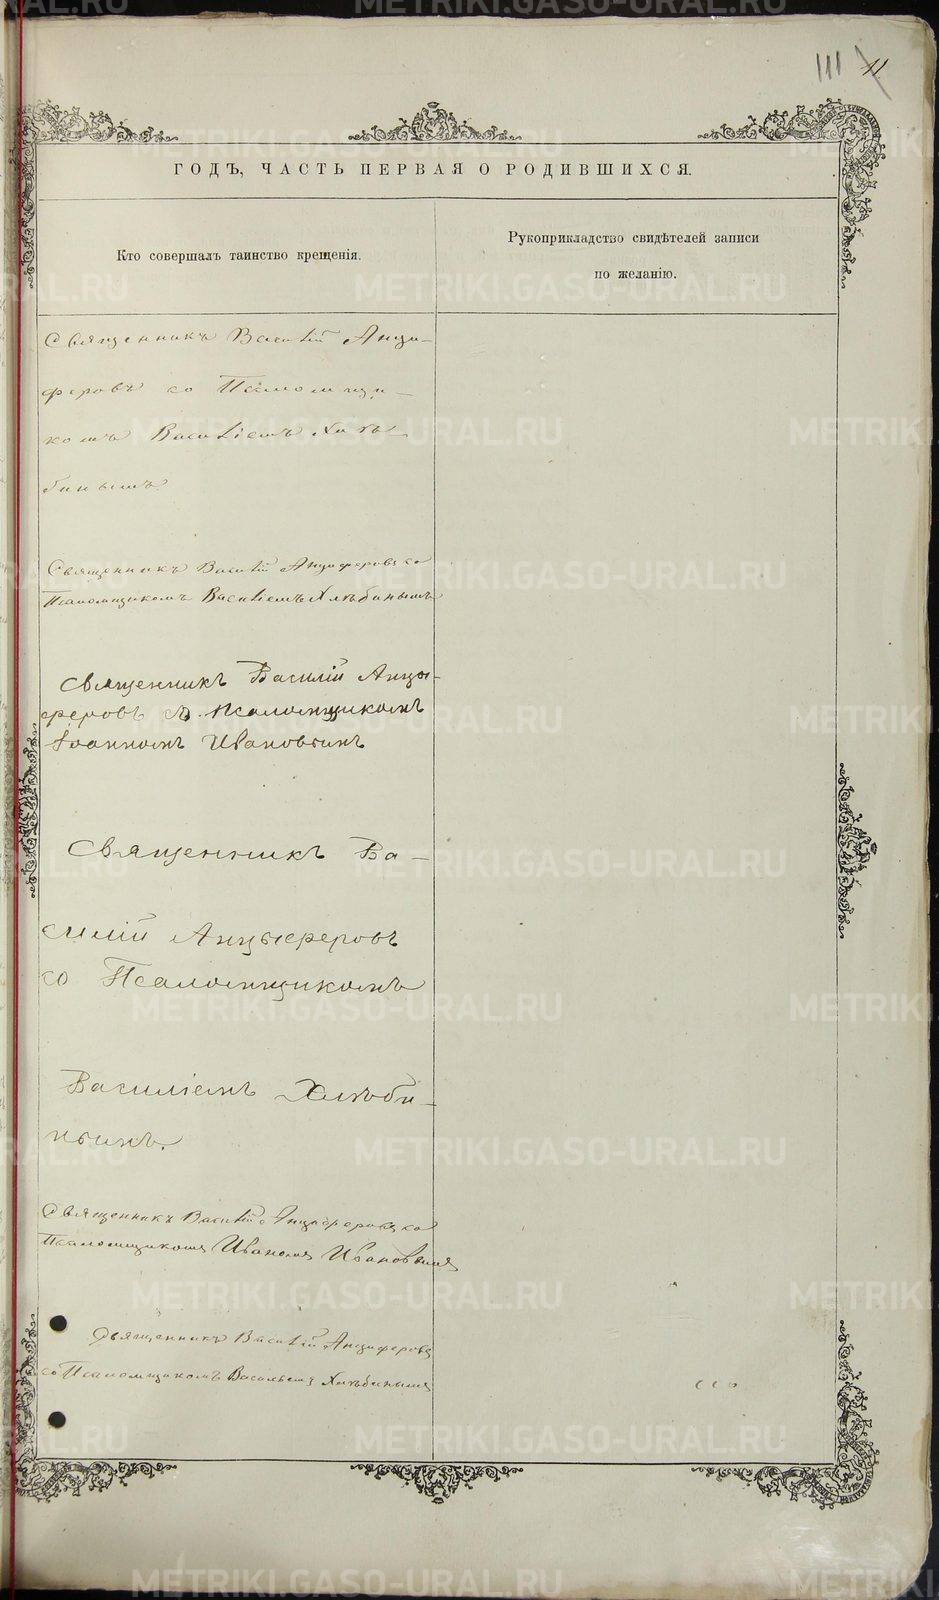 111 11
ГОДЪ, ЧАСТЬ ПЕРВАЯ О РОДИВШИХСЯ.
Кто совершалъ таинство крещенія.
Рукоприкладство свидѣтелей записи
по желанію.
Священникъ Василій Анци-
феровъ со Псаломщи-
комъ Василіемъ Хлѣ-
бинымъ
Священникъ Василій Анциферовъ со
Псаломщикомъ Василіемъ Хлѣбинымъ
Священникъ Василій Анцы-
феровъ съ псаломщикомъ
Іоанномъ Ивановымъ
Священникъ Ва-
силій Анцыферовъ
со Псаломщикомъ
Василіемъ Хлѣби-
нымъ.
Священникъ Василій Анциферовъ со
Псаломщикомъ Иваномъ Ивановымъ
Священникъ Василій Анциферовъ
со Псаломщикомъ Васильемъ Хлѣбинымъ
METRIKI.GASO-URAL.RU